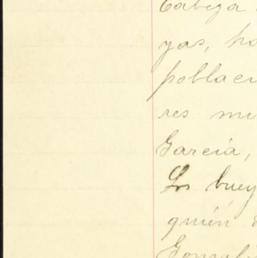 Cabeza
yas, ha
poblaci
res mu
García,
Los buey
quién
Gonzal